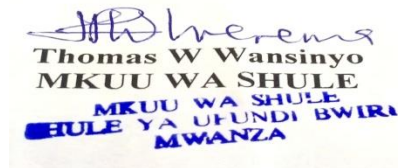 Thomas W Wansinyo
MKUU WA SHULE
MKUU WA SHULE
SHULE YA UFUNDI BWIRI
MWANZA